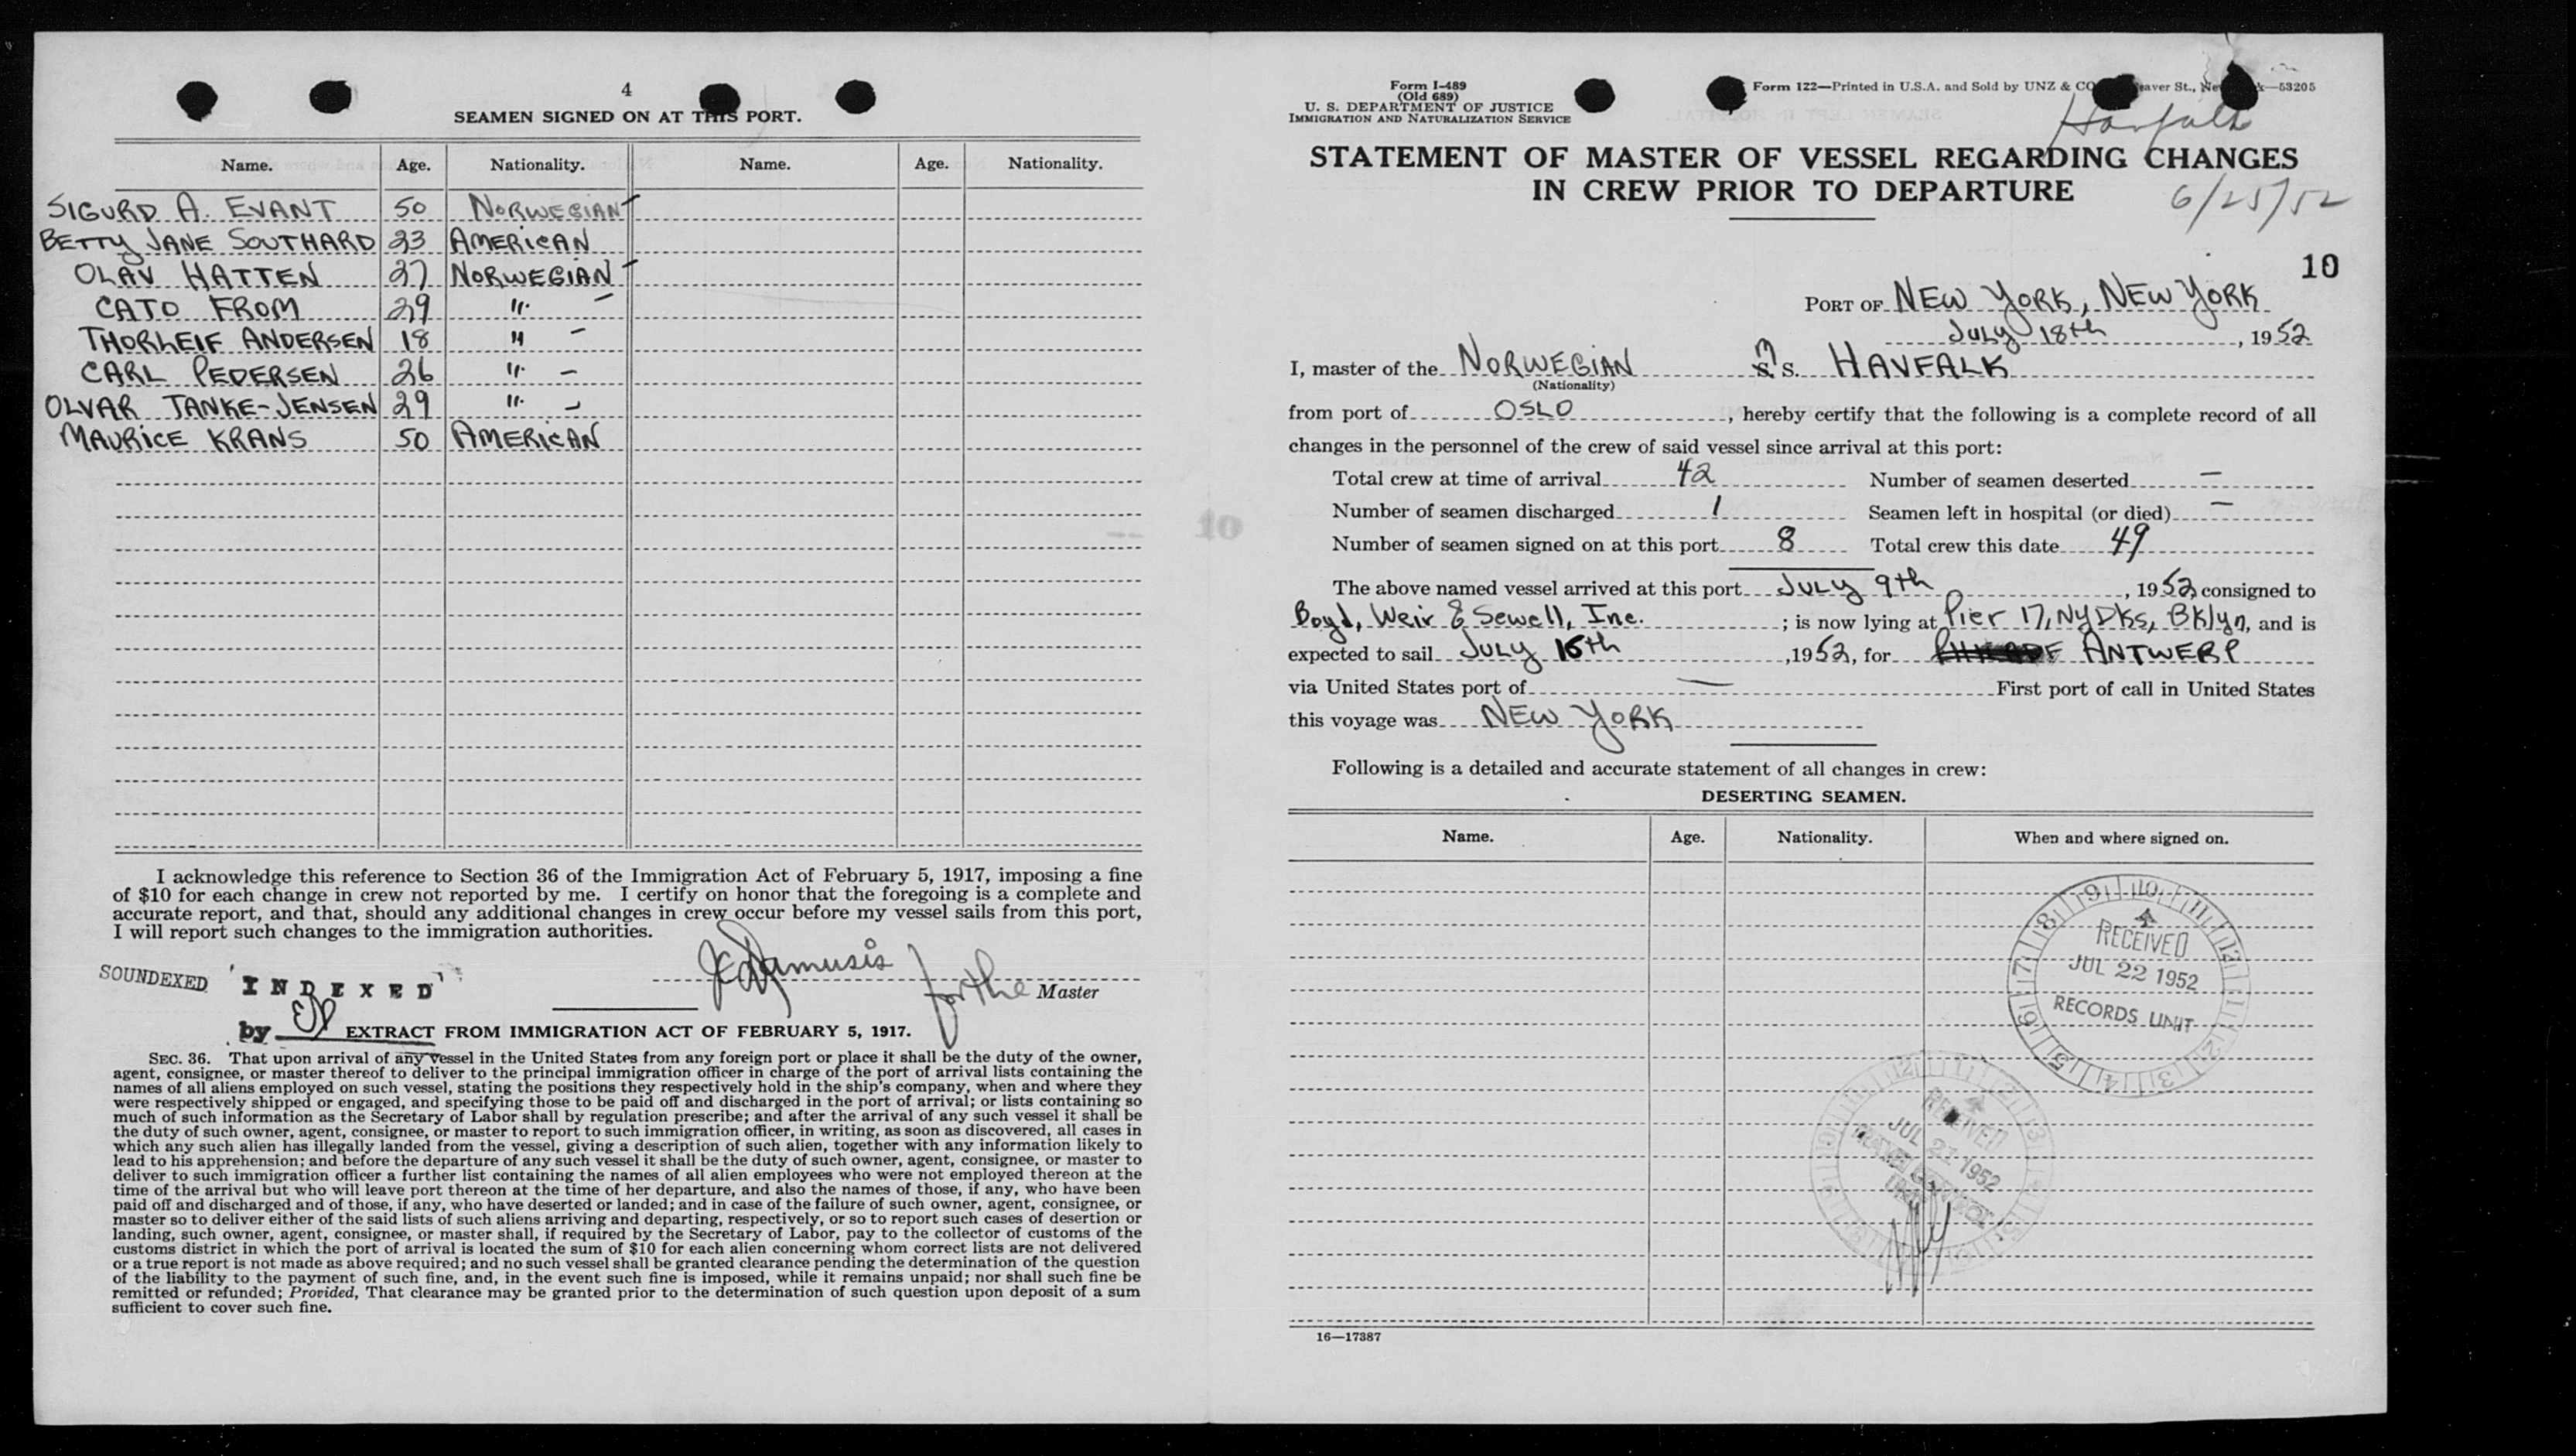 4
SEAMEN SIGNED ON AT THIS PORT.
Name. Age. Nationality. Name. Age. Nationality.
SIGURD A. EVANT 50 NORWEGIAN
BETTY JANE SOUTHARD 23 AMERICAN
OLAV HATTEN 27 NORWEGIAN
CATO FROM 29 " –
THORLEIF ANDERSEN 18 " –
CARL PEDERSEN 26 " –
OLVAR TANKE-JENSEN 29 " –
MAURICE KRANS 50 AMERICAN
I acknowledge this reference to Section 36 of the Immigration Act of February 5, 1917, imposing a fine
of $10 for each change in crew not reported by me. I certify on honor that the foregoing is a complete and
accurate report, and that, should any additional changes in crew occur before my vessel sails from this port,
I will report such changes to the immigration authorities.
SOUNDEXED 'INDEXED'
for the Master
by
EXTRACT FROM IMMIGRATION ACT OF FEBRUARY 5, 1917.
SEC. 36. That upon arrival of any vessel in the United States from any foreign port or place it shall be the duty of the owner,
agent, consignee, or master thereof to deliver to the principal immigration officer in charge of the port of arrival lists containing the
names of all aliens employed on such vessel, stating the positions they respectively hold in the ship's company, when and where they
were respectively shipped or engaged, and specifying those to be paid off and discharged in the port of arrival; or lists containing so
much of such information as the Secretary of Labor shall by regulation prescribe; and after the arrival of any such vessel it shall be
the duty of such owner, agent, consignee, or master to report to such immigration officer, in writing, as soon as discovered, all cases in
which any such alien has illegally landed from the vessel, giving a description of such alien, together with any information likely to
lead to his apprehension; and before the departure of any such vessel it shall be the duty of such owner, agent, consignee, or master to
deliver to such immigration officer a further list containing the names of all alien employees who were not employed thereon at the
time of the arrival but who will leave port thereon at the time of her departure, and also the names of those, if any, who have been
paid off and discharged and of those, if any, who have deserted or landed; and in case of the failure of such owner, agent, consignee, or
master so to deliver either of the said lists of such aliens arriving and departing, respectively, or so to report such cases of desertion or
landing, such owner, agent, consignee, or master shall, if required by the Secretary of Labor, pay to the collector of customs of the
customs district in which the port of arrival is located the sum of $10 for each alien concerning whom correct lists are not delivered
or a true report is not made as above required; and no such vessel shall be granted clearance pending the determination of the question
of the liability to the payment of such fine, and, in the event such fine is imposed, while it remains unpaid; nor shall such fine be
remitted or refunded; Provided, That clearance may be granted prior to the determination of such question upon deposit of a sum
sufficient to cover such fine.
Form I-489
(Old 689)
U. S. DEPARTMENT OF JUSTICE
IMMIGRATION AND NATURALIZATION SERVICE
Form 122—Printed in U.S.A. and Sold by UNZ & CO St., —53205
STATEMENT OF MASTER OF VESSEL REGARDING CHANGES
IN CREW PRIOR TO DEPARTURE
6/25/52
10
PORT OF NEW YORK, NEW YORK
JULY 18th, 1952
I, master of the NORWEGIAN M S. HAVFALK
(Nationality)
from port of OSLO, hereby certify that the following is a complete record of all
changes in the personnel of the crew of said vessel since arrival at this port:
Total crew at time of arrival 42 Number of seamen deserted —
Number of seamen discharged 1 Seamen left in hospital (or died) —
Number of seamen signed on at this port 8 Total crew this date 49
The above named vessel arrived at this port JULY 9th, 1952 consigned to
Boyd, Weir & Sewell, Inc. ; is now lying at Pier 17, NYDKs, BKlyn, and is
expected to sail JULY 18th, 1952, for ANTWERP
via United States port of — First port of call in United States
this voyage was NEW YORK
Following is a detailed and accurate statement of all changes in crew:
DESERTING SEAMEN.
Name. Age. Nationality. When and where signed on.
RECEIVED
JUL 22 1952
RECORDS UNIT
RECEIVED
JUL 21 1952
16—17387